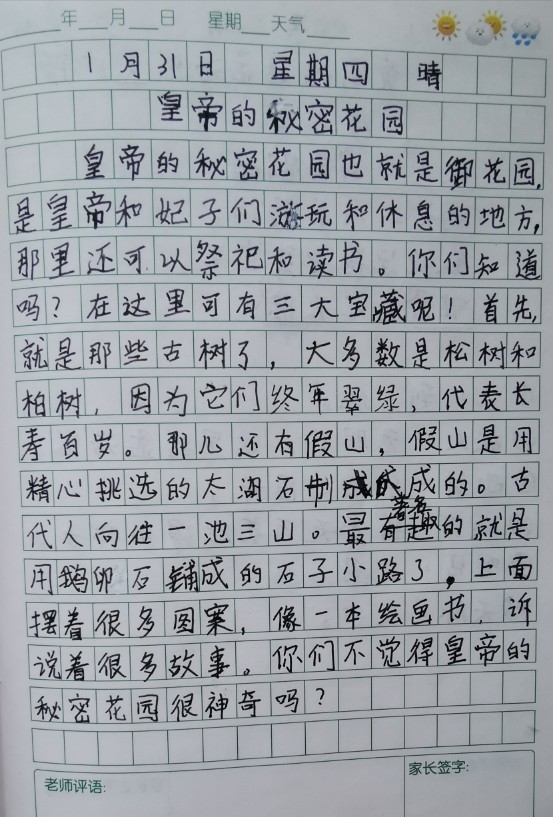 年 月 日 星期 天气
1月31日 星期四 晴
皇帝的秘密花园
皇帝的秘密花园也就是御花园,
是皇帝和妃子们游玩和休息的地方,
那里还可以祭祀和读书。你们知道
吗？在这里可有三大宝藏呢！首先,
就是那些古树了，大多数是松树和
柏树，因为它们终年翠绿，代表长
寿百岁。那儿还有假山，假山是用
精心挑选的太湖石制成的。古
著名
代人向往一池三山。最有趣的就是
用鹅卵石铺成的石子小路了，上面
摆着很多图案，像一本绘画书，诉
说着很多故事。你们不觉得皇帝的
秘密花园很神奇吗？
老师评语:
家长签字: